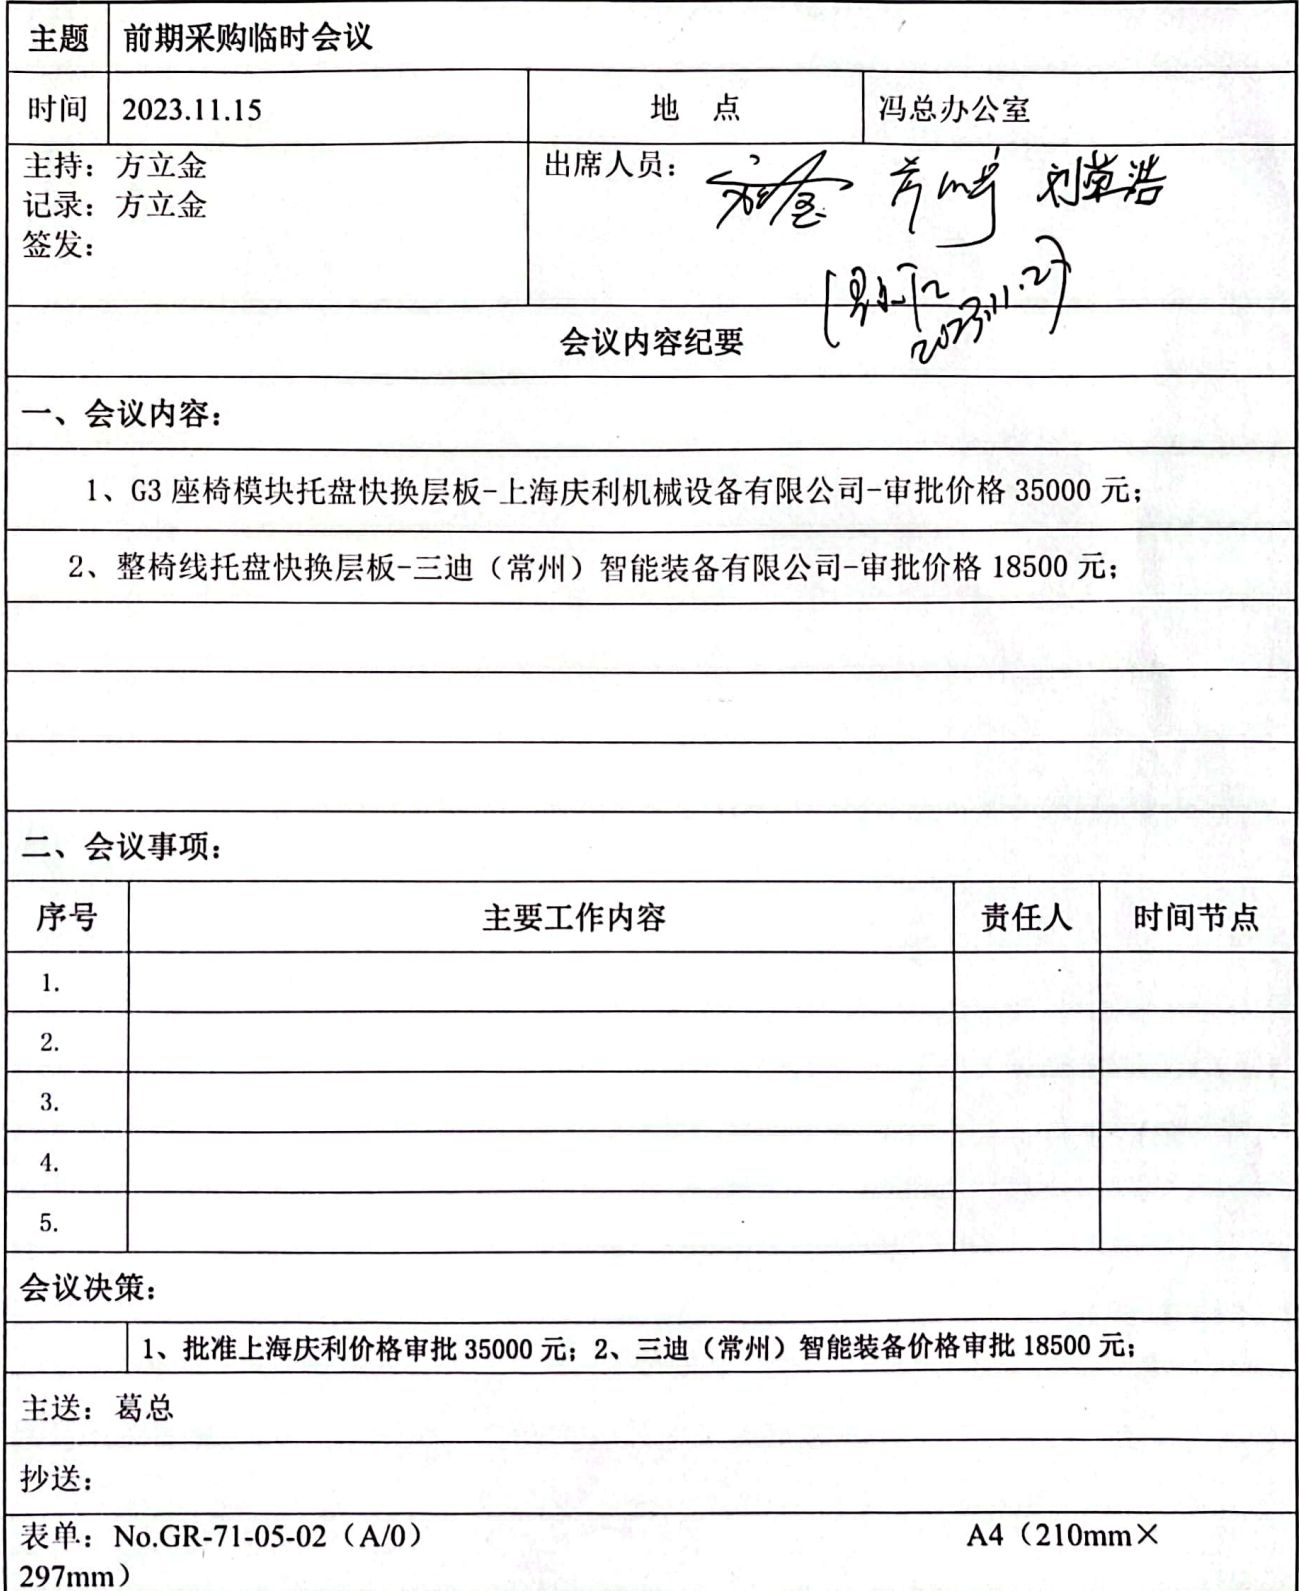 主题 前期采购临时会议
时间 2023.11.15 地 点 冯总办公室
主持：方立金
记录：方立金
签发：
出席人员： 方立金 刘荣浩
2023.11.27
会议内容纪要
一、会议内容：
1、G3 座椅模块托盘快换层板-上海庆利机械设备有限公司-审批价格 35000 元；
2、整椅线托盘快换层板-三迪（常州）智能装备有限公司-审批价格 18500 元；
二、会议事项：
序号 主要工作内容 责任人 时间节点
1.
2.
3.
4.
5.
会议决策：
1、批准上海庆利价格审批 35000 元；2、三迪（常州）智能装备价格审批 18500 元；
主送：葛总
抄送：
表单：No.GR-71-05-02（A/0） A4（210mm×
297mm）